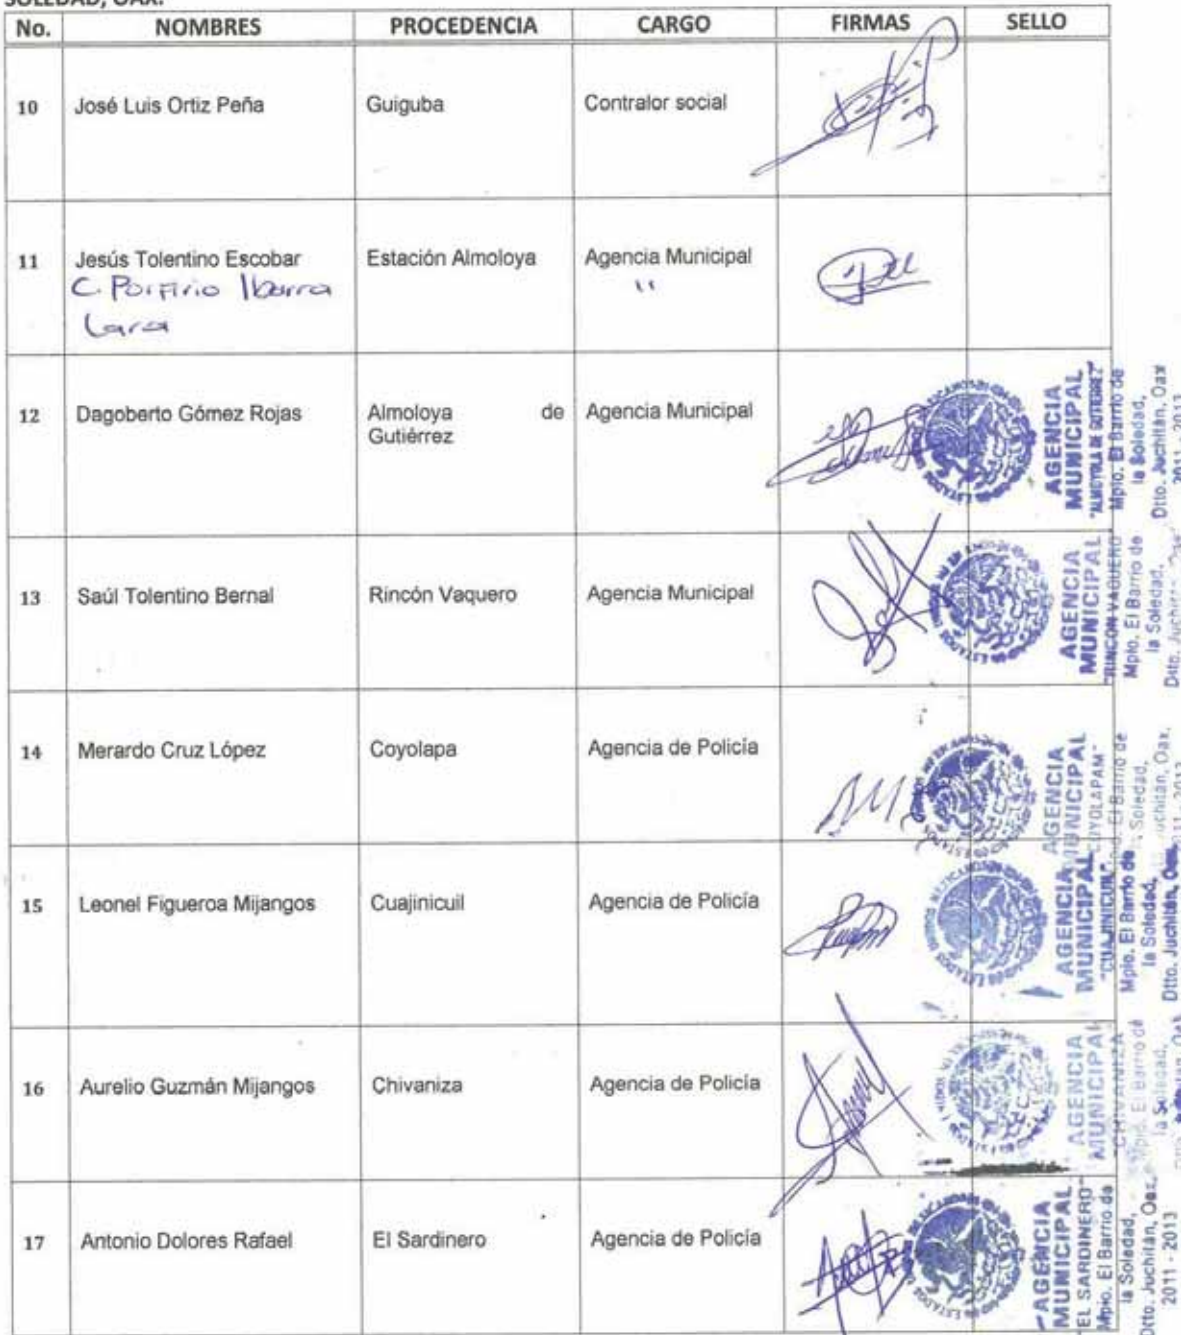 SOLEDAD, OAX.
No. NOMBRES PROCEDENCIA CARGO FIRMAS SELLO
10 José Luis Ortiz Peña Guiguba Contralor social
11 Jesús Tolentino Escobar Estación Almoloya Agencia Municipal
C. Porfirio Ibarra "
Lara
12 Dagoberto Gómez Rojas Almoloya de Agencia Municipal
Gutiérrez
AGENCIA
MUNICIPAL
"ALMOYOLA DE GUTIERREZ"
Mpio. El Barrio de
la Soledad,
Dtto. Juchitán, Oax
2011 - 2013
13 Saúl Tolentino Bernal Rincón Vaquero Agencia Municipal
AGENCIA
MUNICIPAL
"RINCON VAQUERO"
Mpio. El Barrio de
la Soledad,
Dtto.
14 Merardo Cruz López Coyolapa Agencia de Policía
AGENCIA
MUNICIPAL
El Barrio de
Soledad,
Oax.
15 Leonel Figueroa Mijangos Cuajinicuil Agencia de Policía
AGENCIA
MUNICIPAL
"CUAJINICUIL"
Mpio. El Barrio de
la Soledad,
Dtto. Juchitán, Oax.
16 Aurelio Guzmán Mijangos Chivaniza Agencia de Policía
AGENCIA
MUNICIPAL
CHIVANIZA
El Barrio de
la Soledad,
17 Antonio Dolores Rafael El Sardinero Agencia de Policía
AGENCIA
MUNICIPAL
"EL SARDINERO"
Mpio. El Barrio de
la Soledad,
Dtto. Juchitán, Oax.
2011 - 2013